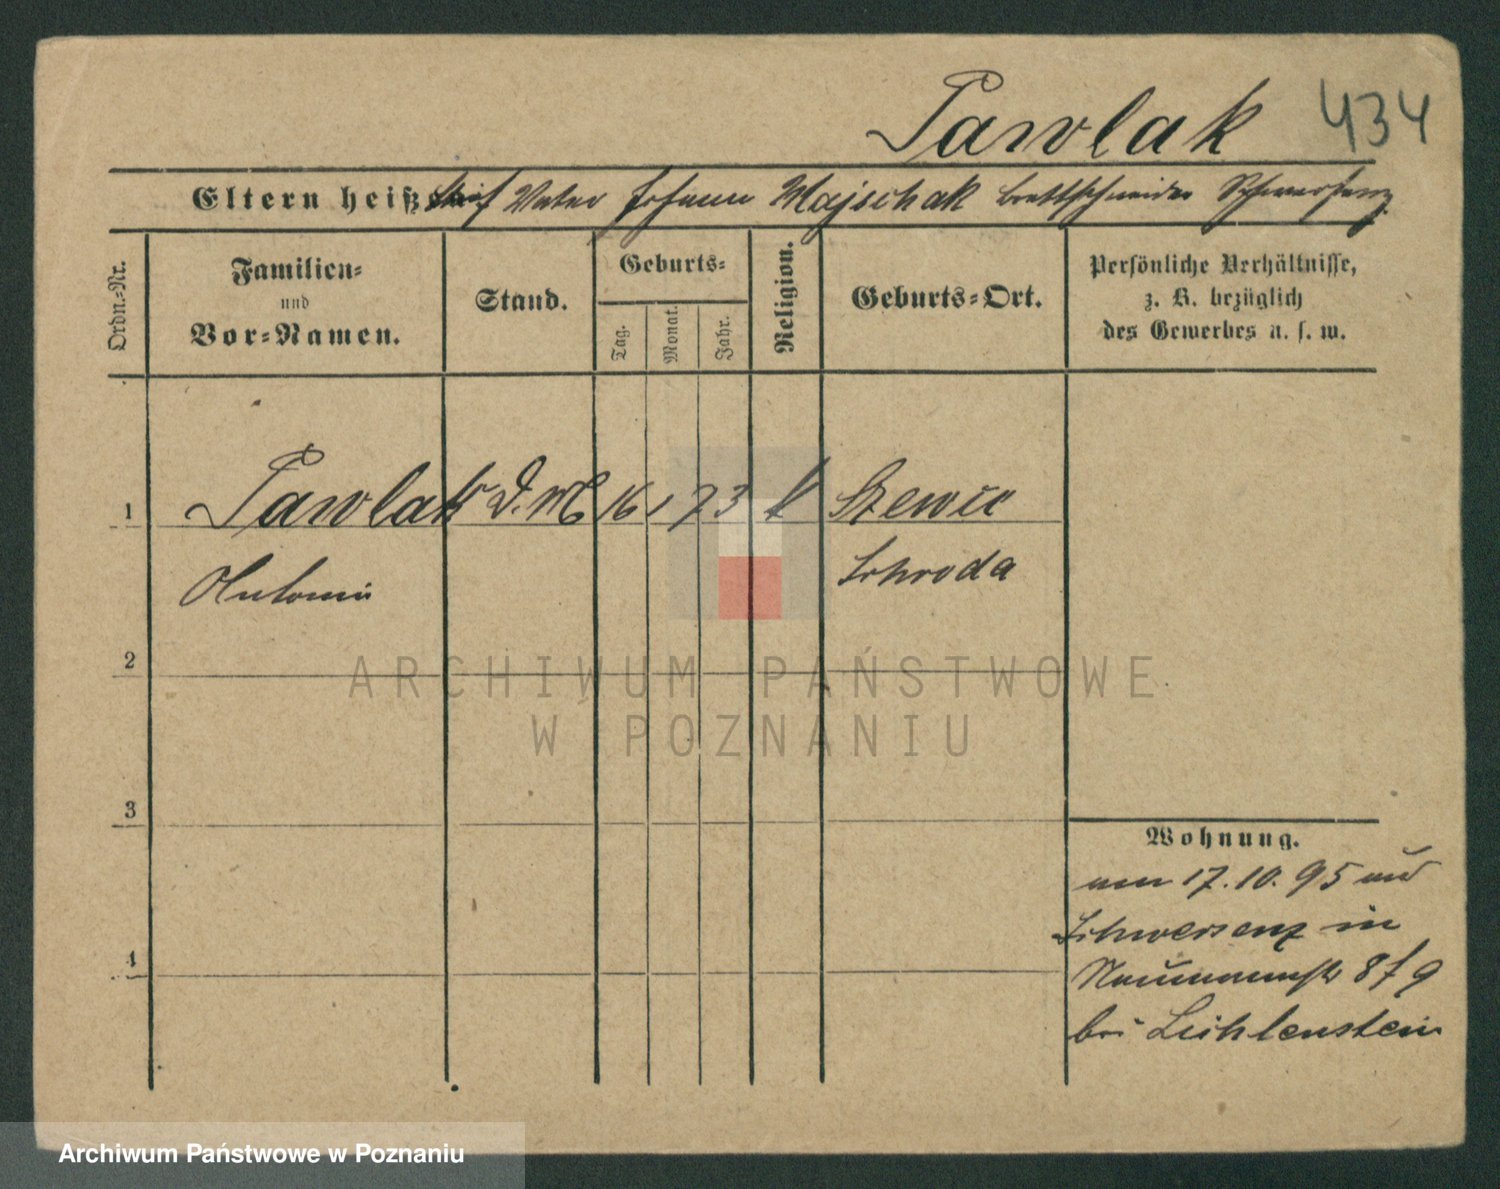 Pawlak 434
Eltern heißen: Stief Vater Johann Majschak Brettschneider Schwersenz
Ordn.-Nr.
Familien-
und
Vor-Namen.
Stand.
Geburts-
Tag.
Monat.
Jahr.
Religion.
Geburts-Ort.
Persönliche Verhältnisse,
z. B. bezüglich
des Gewerbes u. s. w.
1 Pawlak D.M. 16 1 73 k
Antonie Schroda
2
3
4
Wohnung.
am 17.10.95 aus
Schwersenz in
Naumannstr 8/9
bei Lichtenstein
ARCHIWUM PAŃSTWOWE
W POZNANIU
Archiwum Państwowe w Poznaniu